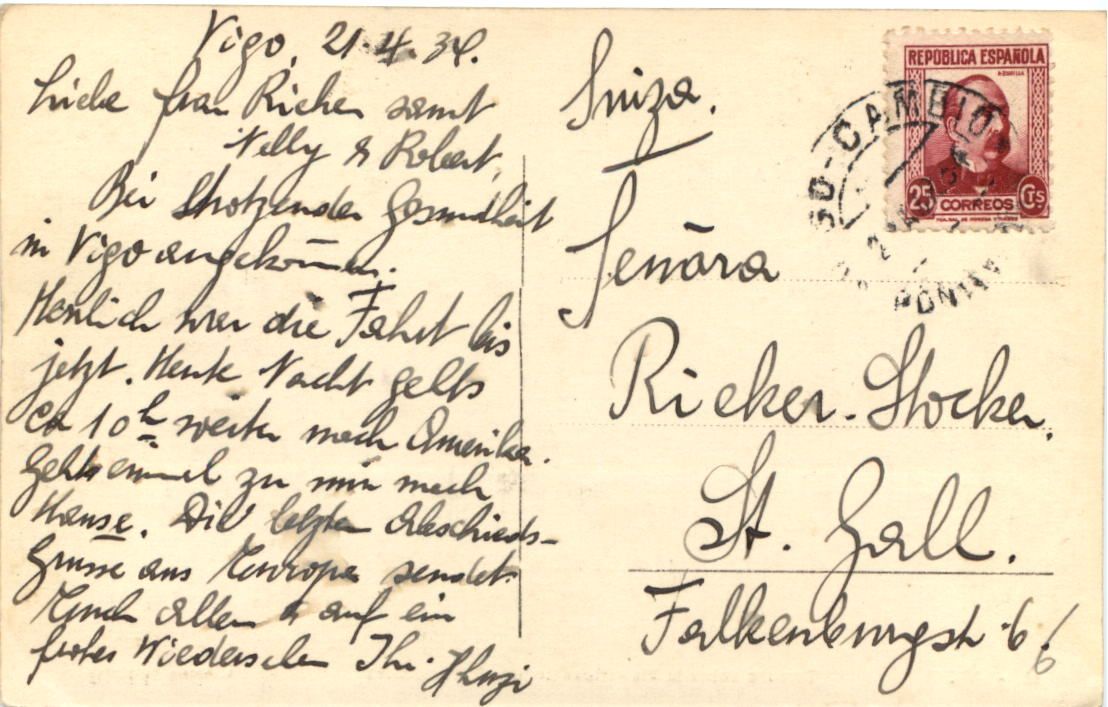 Vigo, 21.4.34.
Liebe Frau Rieker samt
Nelly & Robert,
Bei strotzender Gesundheit
in Vigo angekom̄en.
Herrlich war die Fahrt bis
jetzt. Heute Nacht gehts
ca 10h weiter nach Amerika.
Gehts einmal zu mir nach
Hause. Die letzten Abschieds-
grüsse aus Europa sendet
Euch allen & auf ein
frohes Wiedersehen Ihr
Suiza.
Senõra
Rieker-Stocker.
St. Gall.
Falkenburgstr. 6
6
REPÚBLICA ESPAÑOLA
25 CORREOS CTS
CAMBIO